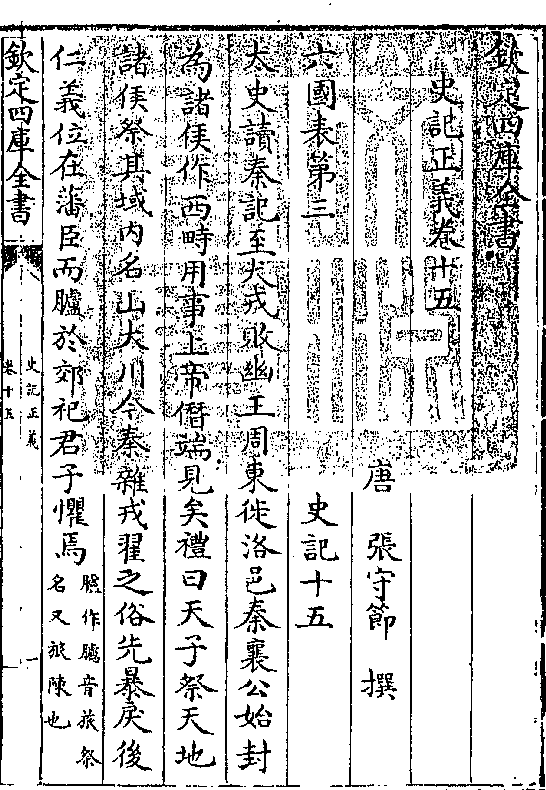 欽定四庫全書
史記正義卷十五
唐 張守節 撰
六國表第三 史記十五
太史讀秦記至犬戎敗幽王周東徙洛邑秦襄公始封
為諸侯作西畤用事上帝僭端見矣禮曰天子祭天地
諸侯祭其域内名山大川今秦雜戎翟之俗先暴戾後
仁義位在藩臣而臚於郊祀君子懼焉
臚作臈音旅祭
名又旅陳也
欽定四庫全書
史記正義
卷十五
一